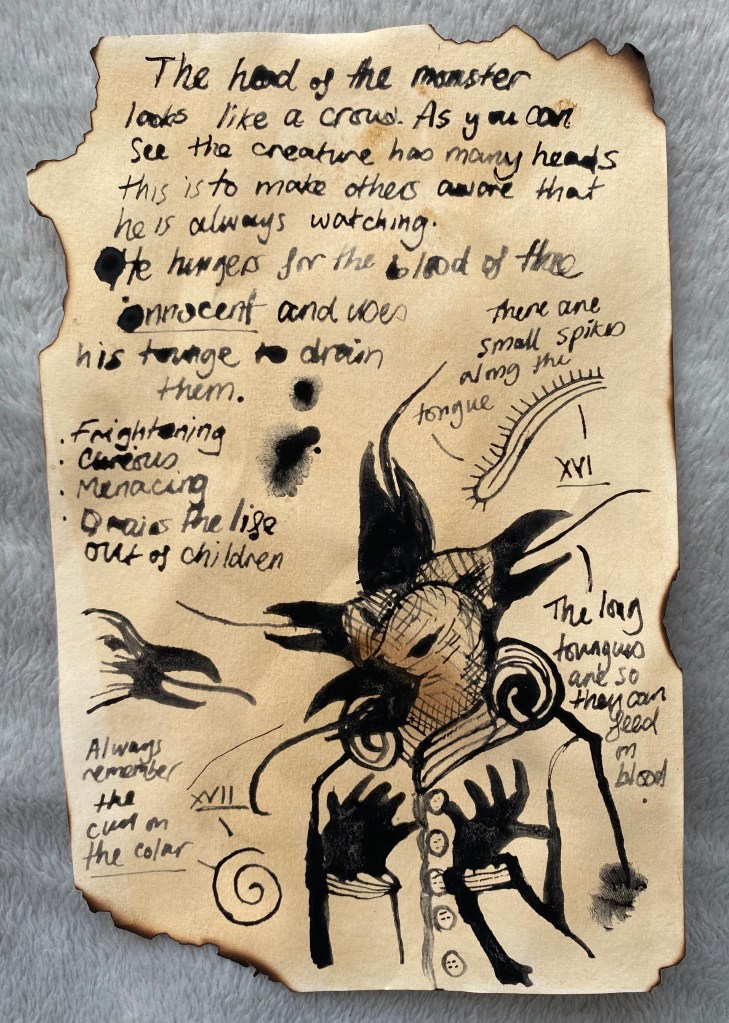 The head of the monster
looks like a crow. As you can
See the creature has many heads
this is to make others aware that
he is always watching.
He hungers for the blood of the
innocent and uses
his tounge to drain
them.
There are
small spikes
along the
tongue
XVI
. Frightening
. Cureious
. Menacing
. Drains the life
out of children
The long
toungues
are so
they can
feed
on
blood
.
Always
remember
the
curl on
the colar
XVII